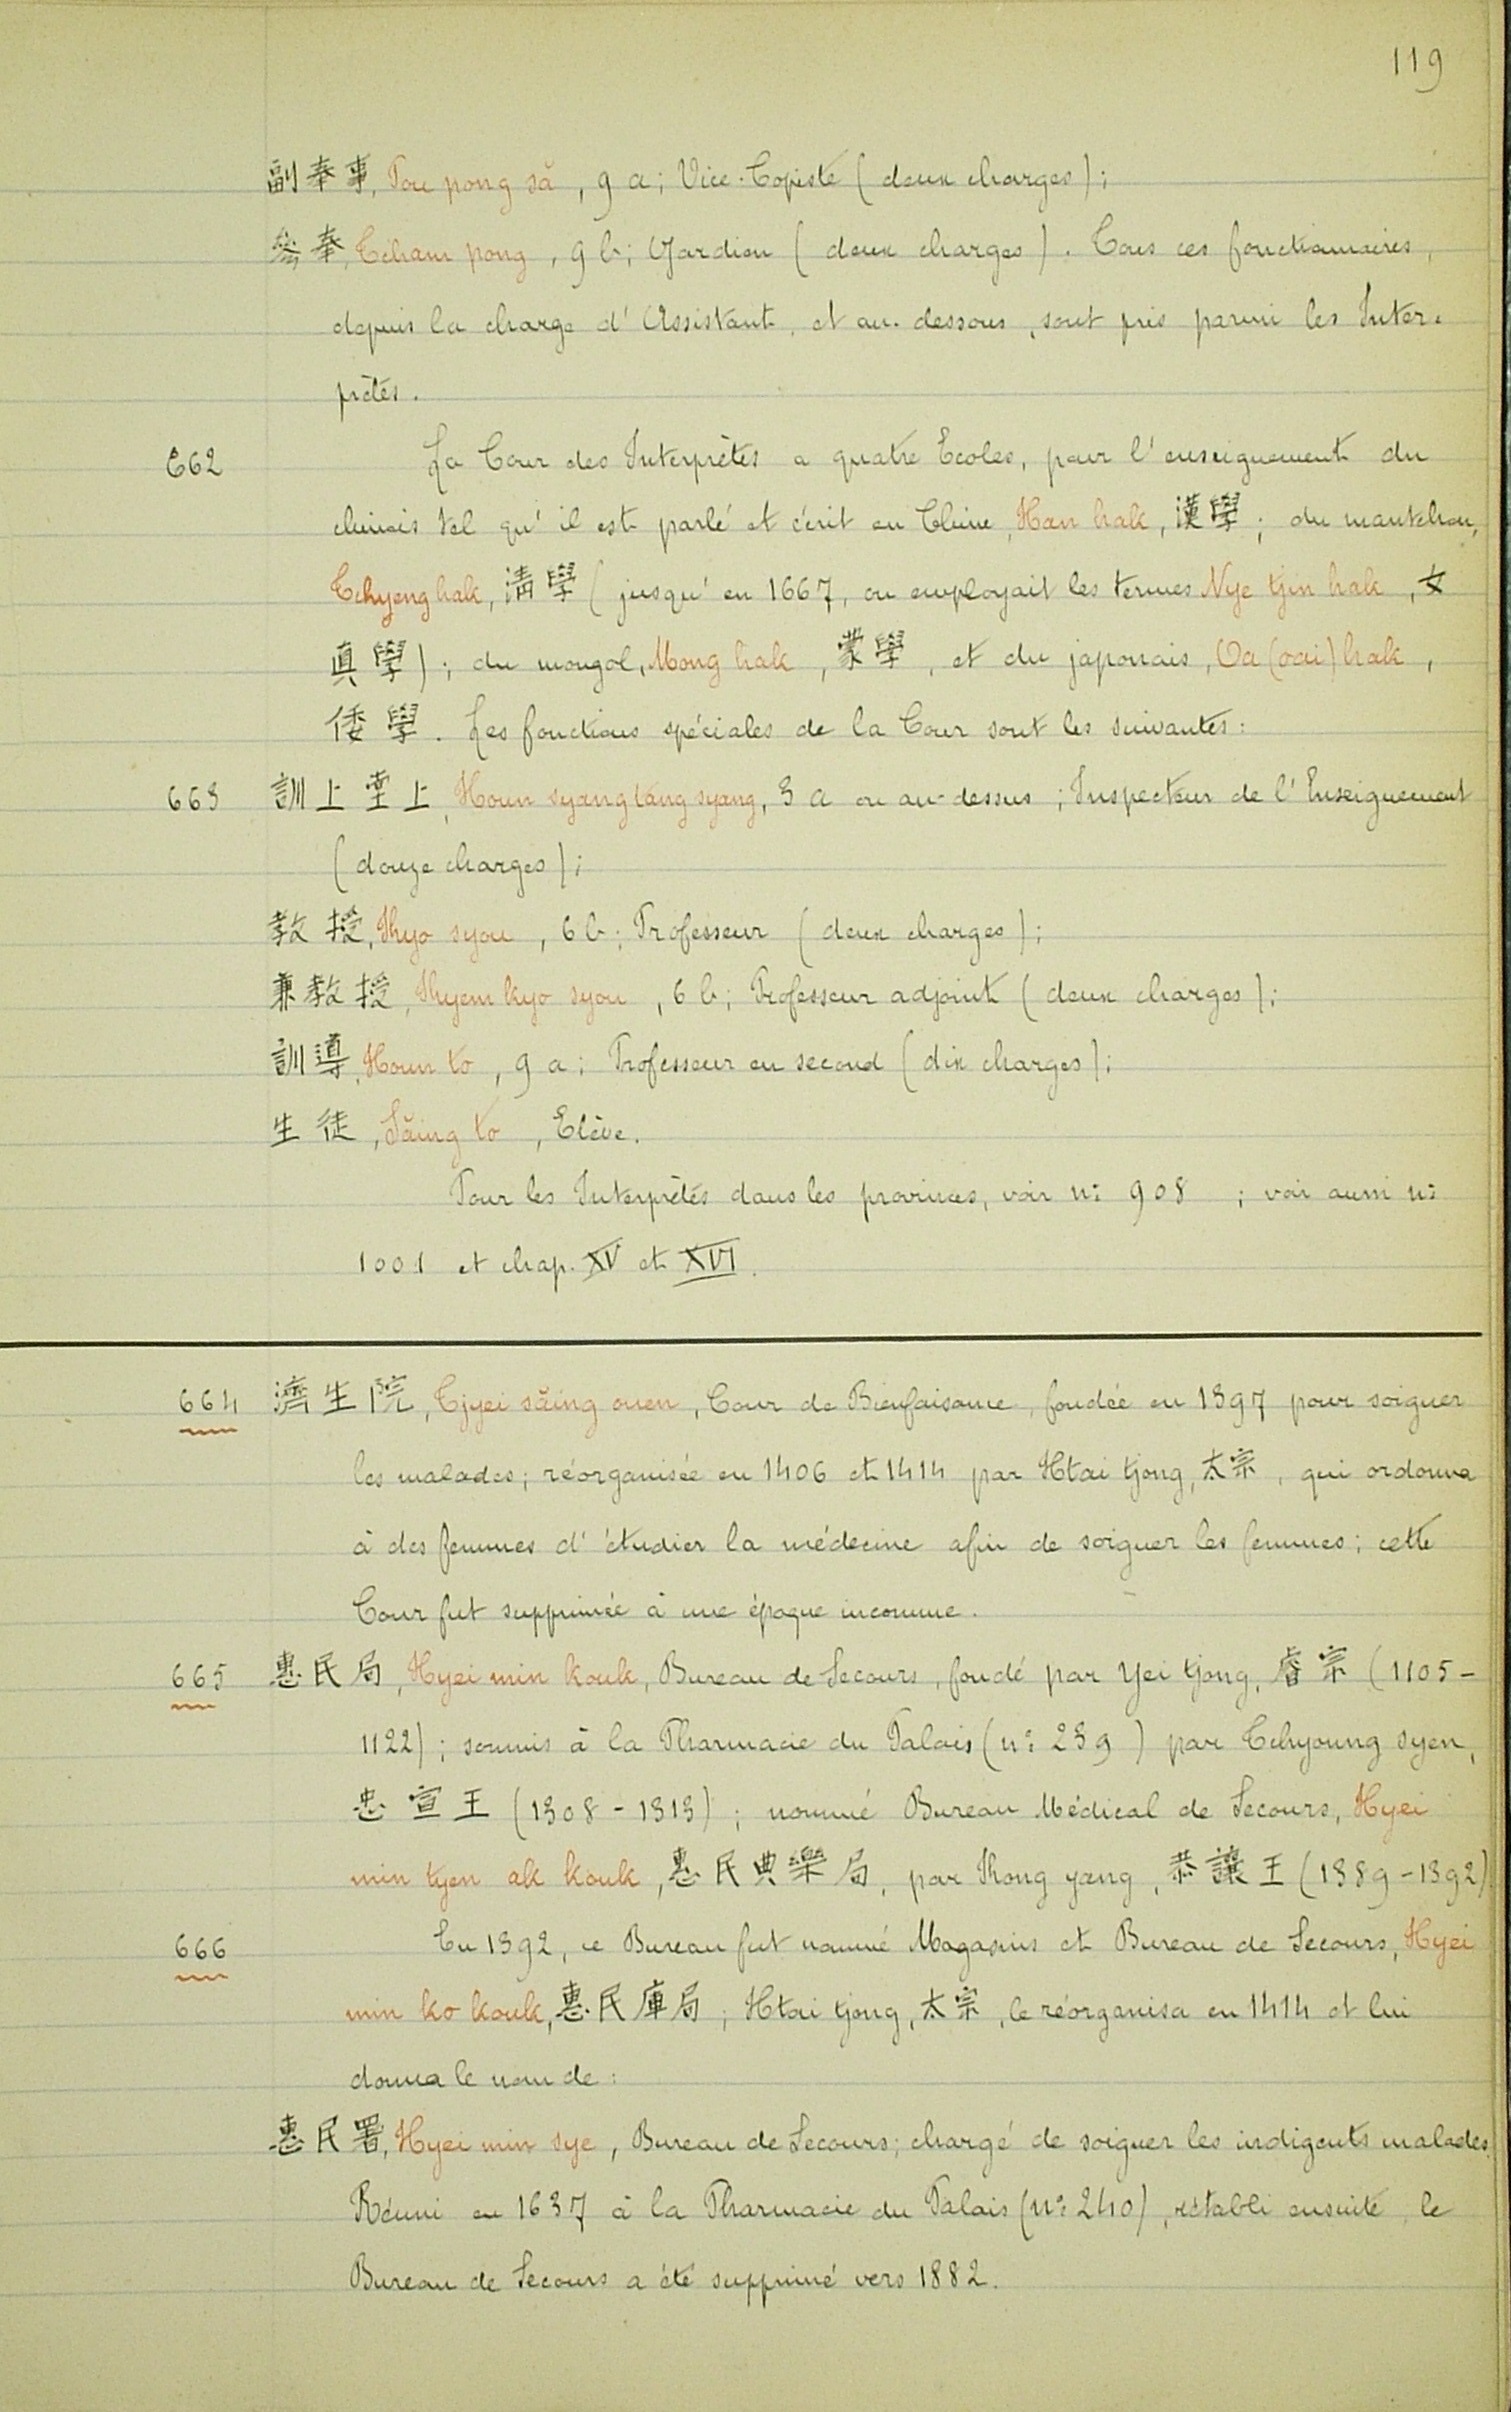 119
副奉事, Pou pong să, 9 a; Vice-Copiste (deux charges);
參奉, Tcham pong, 9 b; Gardien (deux charges). Tous ces fonctionnaires,
depuis la charge d'Assistant, et au-dessous, sont pris parmi les Inter-
prètes.
662 La Cour des Interprètes a quatre Ecoles, pour l'enseignement du
chinois tel qu'il est parlé et écrit en Chine, Han hak, 漢學; du mantchou,
Tchyeng hak, 淸學 (jusqu'en 1667, on employait les termes Nye tjin hak, 女
眞學); du mongol, Mong hak, 蒙學, et du japonais, Oa (oai) hak,
倭學. Les fonctions spéciales de la Cour sont les suivantes:
663 訓上堂上, Houn syang tang syang, 3 a ou au-dessus; Inspecteur de l'Enseignement
(douze charges);
敎授, Khyo syou, 6 b; Professeur (deux charges);
兼敎授, Khyem kyo syou, 6 b; Professeur adjoint (deux charges);
訓導, Houn to, 9 a; Professeur en second (dix charges);
生徒, Săing to, Elève.
Pour les Interprètes dans les provinces, voir nº 908 ; voir aussi nº
1001 et chap. XV et XVI.
664 濟生院, Tjyei săing ouen, Cour de Bienfaisance, fondée en 1397 pour soigner
les malades; réorganisée en 1406 et 1414 par Htai tjong, 太宗, qui ordonna
à des femmes d'étudier la médecine afin de soigner les femmes; cette
Cour fut supprimée à une époque inconnue.
665 惠民局, Hyei min kouk, Bureau de Secours, fondé par Yei tjong, 睿宗 (1105-
1122); soumis à la Pharmacie du Palais (nº 239) par Tchyoung syen,
忠宣王 (1308-1313); nommé Bureau Médical de Secours, Hyei
min tyen ak kouk, 惠民典樂局, par Khong yang, 恭讓王 (1389-1392)
666 En 1392, ce Bureau fut nommé Magasins et Bureau de Secours, Hyei
min ko kouk, 惠民庫局; Htai tjong, 太宗, le réorganisa en 1414 et lui
donna le nom de:
惠民署, Hyei min sye, Bureau de Secours; chargé de soigner les indigents malades.
Réuni en 1637 à la Pharmacie du Palais (nº 240), rétabli ensuite, le
Bureau de Secours a été supprimé vers 1882.